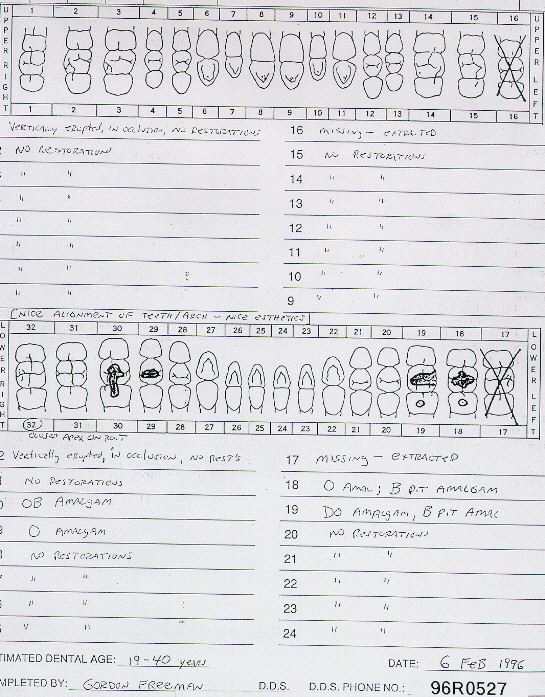 1 2 3 4 5 6 7 8 9 10 11 12 13 14 15 16
UPPER RIGHT
UPPER LEFT
1 2 3 4 5 6 7 8 9 10 11 12 13 14 15 16
VERTICALLY ERUPTED, IN OCCLUSION, NO RESTORATIONS
16 MISSING - EXTRACTED
NO RESTORATIONS
15 NO RESTORATIONS
" "
14 " "
" "
13 " "
" "
12 " "
" "
11 " "
" "
10 " "
" "
9 " "
[NICE ALIGNMENT OF TEETH/ARCH - NICE ESTHETICS]
32 31 30 29 28 27 26 25 24 23 22 21 20 19 18 17
LOWER RIGHT
LOWER LEFT
32 31 30 29 28 27 26 25 24 23 22 21 20 19 18 17
CLOSED APEX ON ROOT
2 Vertically erupted, in occlusion, NO REST'S
17 MISSING - EXTRACTED
NO RESTORATIONS
18 O AMAL; B PIT AMALGAM
OB AMALGAM
19 DO AMALGAM, B PIT AMAL
O AMALGAM
20 NO RESTORATIONS
NO RESTORATIONS
21 " "
" "
22 " "
" "
23 " "
" "
24 " "
TIMATED DENTAL AGE: 19-40 years
DATE: 6 FEB 1996
MPLETED BY: GORDON FREEMAN D.D.S. D.D.S. PHONE NO.: 96R0527